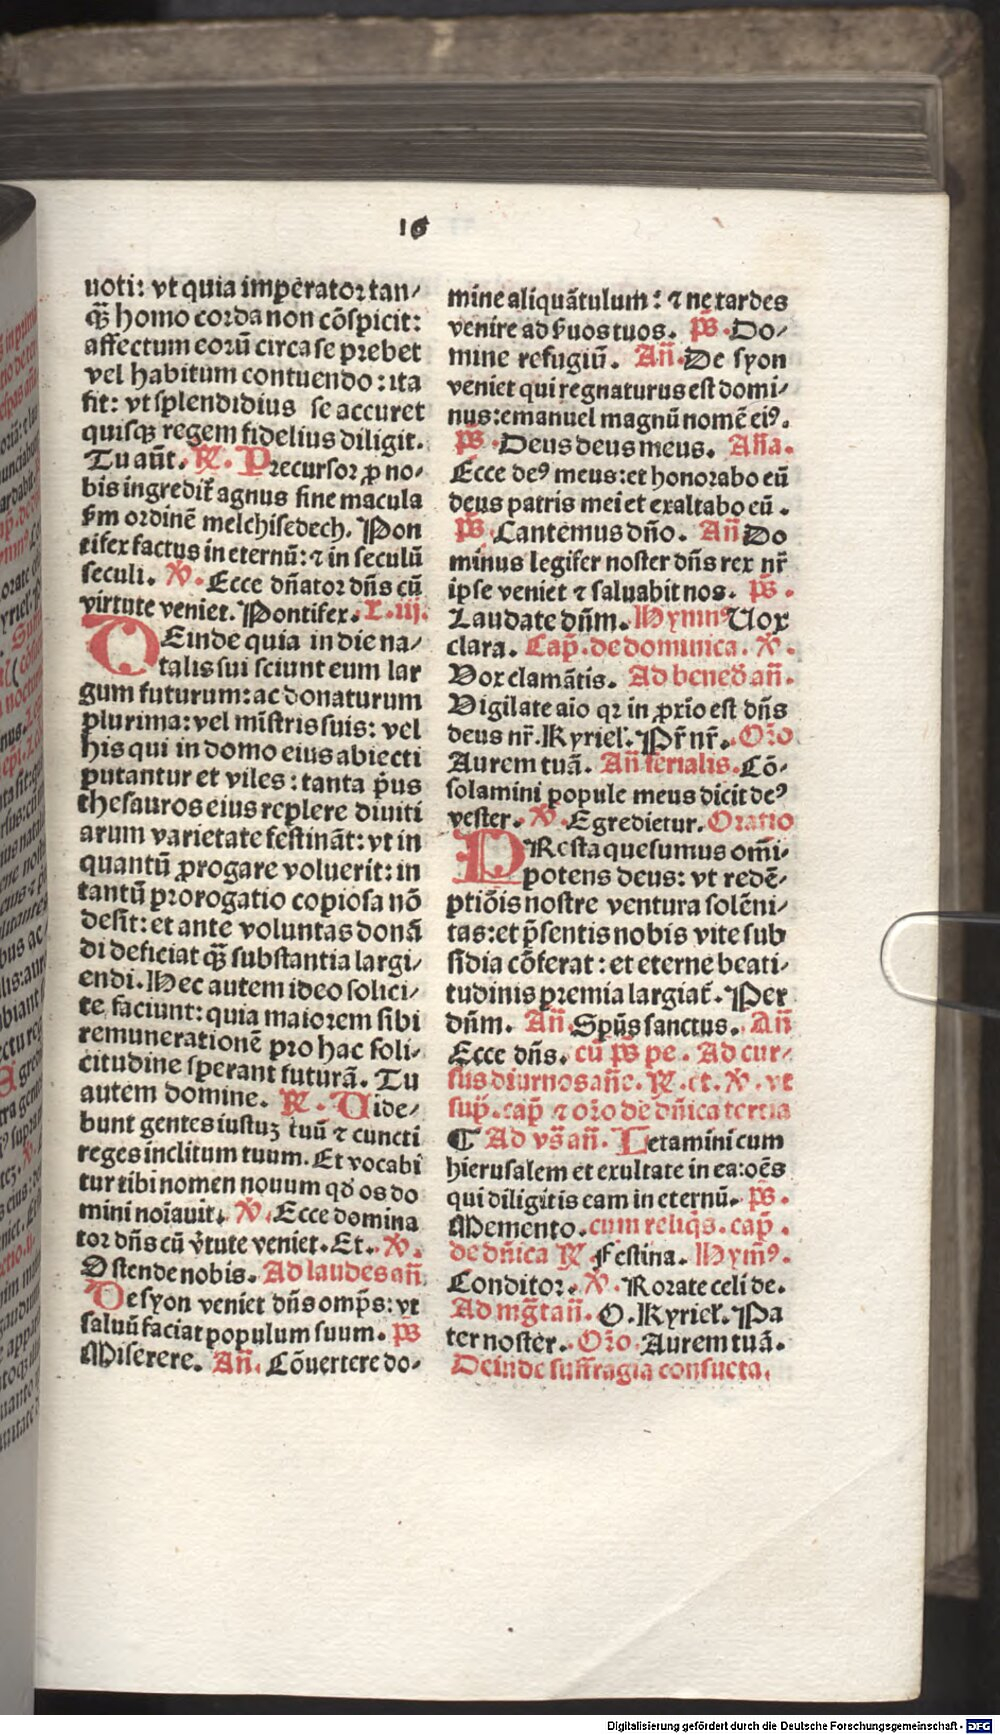 16
uoti: vt quia imperator tan/
q̄ȝ homo corda non cōspicit:
affectum eorū circa se prebet
vel habitum contuendo: ita
fit: vt splendidius se accuret
quisqȝ regem fidelius diligit.
Tu aūt. R̄. Precursor ꝓ no/
bis ingredit᷑ agnus sine macula
s̄m ordinē melchisedech. Pon
tifex factus in eternū: ⁊ in seculū
seculi. V̄. Ecce dn̄ator dn̄s cū
virtute veniet. Pontifex. L. iij.
DEinde quia in die na/
talis sui sciunt eum lar
gum futurum: ac donaturum
plurima: vel mīstris suis: vel
his qui in domo eius abiecti
putantur et viles: tanta p̄us
thesauros eius replere diuiti
arum varietate festināt: vt in
quantū ꝓrogare voluerit: in
tantū prorogatio copiosa nō
desit: et ante voluntas donā
di deficiat q̄ȝ substantia largi/
endi. Hec autem ideo solici/
te faciunt: quia maiorem sibi
remunerationē pro hac soli/
citudine sperant futurā. Tu
autem domine. R̄. Vide/
bunt gentes iustuȝ tuū ⁊ cuncti
reges inclitum tuum. Et vocabi
tur tibi nomen nouum qd̄ os do
mini noīauit. V̄. Ecce domina
tor dn̄s cū v̄tute veniet. Et. V̄.
Ostende nobis. Ad laudes an̄
De syon veniet dn̄s omp̄s: vt
saluū faciat populum suum. p̄s
Miserere. An̄. Cōuertere do/
mine aliquātulum: ⁊ ne tardes
venire ad s̄uos tuos. p̄s. Do/
mine refugiū. An̄. De syon
veniet qui regnaturus est domi/
nus: emanuel magnū nomē eiꝰ.
p̄s. Deus deus meus. An̄a.
Ecce deꝰ meus: et honorabo eū
deus patris mei et exaltabo eū.
p̄s. Cantemus dn̄o. An̄ Do
minus legifer noster dn̄s rex nr̄
ipse veniet ⁊ saluabit nos. p̄s.
Laudate dn̄m. Hymnꝰ Vox
clara. Cap̄. de dominica. V̄.
Vox clamātis. Ad bened̄ an̄.
Vigilate aīo qꝛ in ꝓxīo est dn̄s
deus nr̄. Kyriel̄. Pr̄ nr̄. Or̄o
Aurem tuā. An̄ ferialis. Cō/
solamini popule meus dicit deꝰ
vester. V̄. Egredietur. Oratio
PResta quesumus om̄i/
potens deus: vt redē/
ptiōis nostre ventura solēni/
tas: et p̄sentis nobis vite sub
sidia cōferat: et eterne beati/
tudinis premia largiat᷑. Per
dn̄m. An̄. Sp̄us sanctus. An̄
Ecce dn̄s. cū p̄s pe. Ad cur/
sus diurnos an̄e. R̄. et. V̄. vt
sup̄. cap̄ ⁊ or̄o de dn̄ica tertia
¶ Ad vs̄ an̄. Letamini cum
hierusalem et exultate in ea: oēs
qui diligitis eam in eternū. p̄s.
Memento. cum reliq̄s. cap̄.
de dn̄ica R̄. Festina. Hym̄ꝰ.
Conditor. V̄. Rorate celi de.
Ad mḡt an̄. O. Kyriel̄. Pa
ter noster. Or̄o. Aurem tuā.
Deinde suffragia consueta.
Digitalisierung gefördert durch die Deutsche Forschungsgemeinschaft - DFG